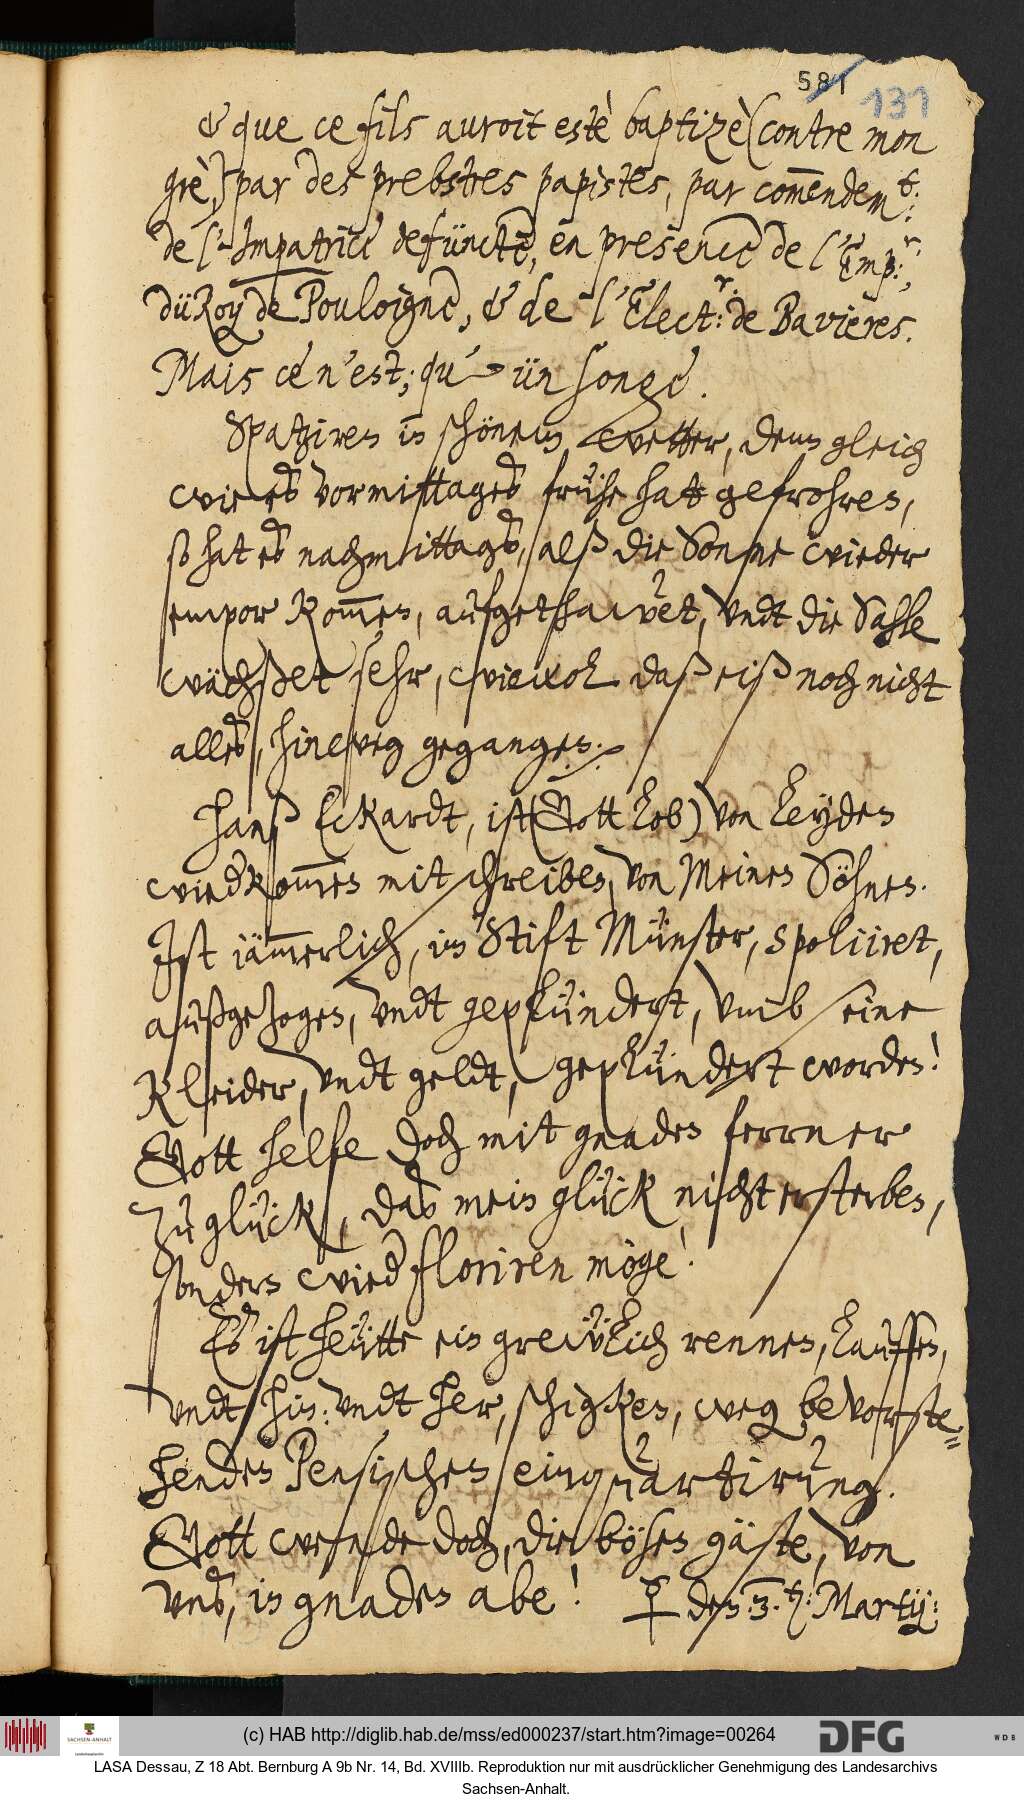 581 131
& que ce fils auroit estè baptizè (contre mon
grè,) par des prebstres papistes, par com̄endem.t:
de l'Impatrice defüncte, en presence de l'Emp.r:,
dü Roy de Pouloigne, & de l'Elect.r: de Bavieres.
Mais ce n'est; qu' ün songe.
Spatziren in schönem wetter, denn gleich
wie es vormittages frühe hatt gefrohren,
so hat es nachmittags, alß die Sonne wieder
empor kom̄en, aufgethawet, undt die Sahle
wächßet sehr, wiewol daß eiß noch nicht
alles, hinweg gegangen.
Hanß Eckardt, ist (Gott lob) von Leyden
wiedkom̄en mit schreiben, von Meinen Söhnen.
Ist jäm̄erlich, im Stift Münster, spoliiret,
außgezogen, undt geplündert, umb seine
Kleider, undt geldt, geplündert worden!
Gott helfe doch mit gnaden ferrner
zu glück, das mein glück nicht ersterben,
sondern wied floriren möge!
Es ist heütte ein grewlich rennen, lauffen,
undt hin: undt her, schigken, weg bevorste=
henden Pensischen einquartirung.
Gott wende doch, die bösen gäste, von
uns, in gnaden abe! ♀ den: 3. t. Martij:
(c) HAB http://diglib.hab.de/mss/ed000237/start.htm?image=00264
SACHSEN-ANHALT
Landeshauptarchiv
DFG
WDB
LASA Dessau, Z 18 Abt. Bernburg A 9b Nr. 14, Bd. XVIIIb. Reproduktion nur mit ausdrücklicher Genehmigung des Landesarchivs
Sachsen-Anhalt.